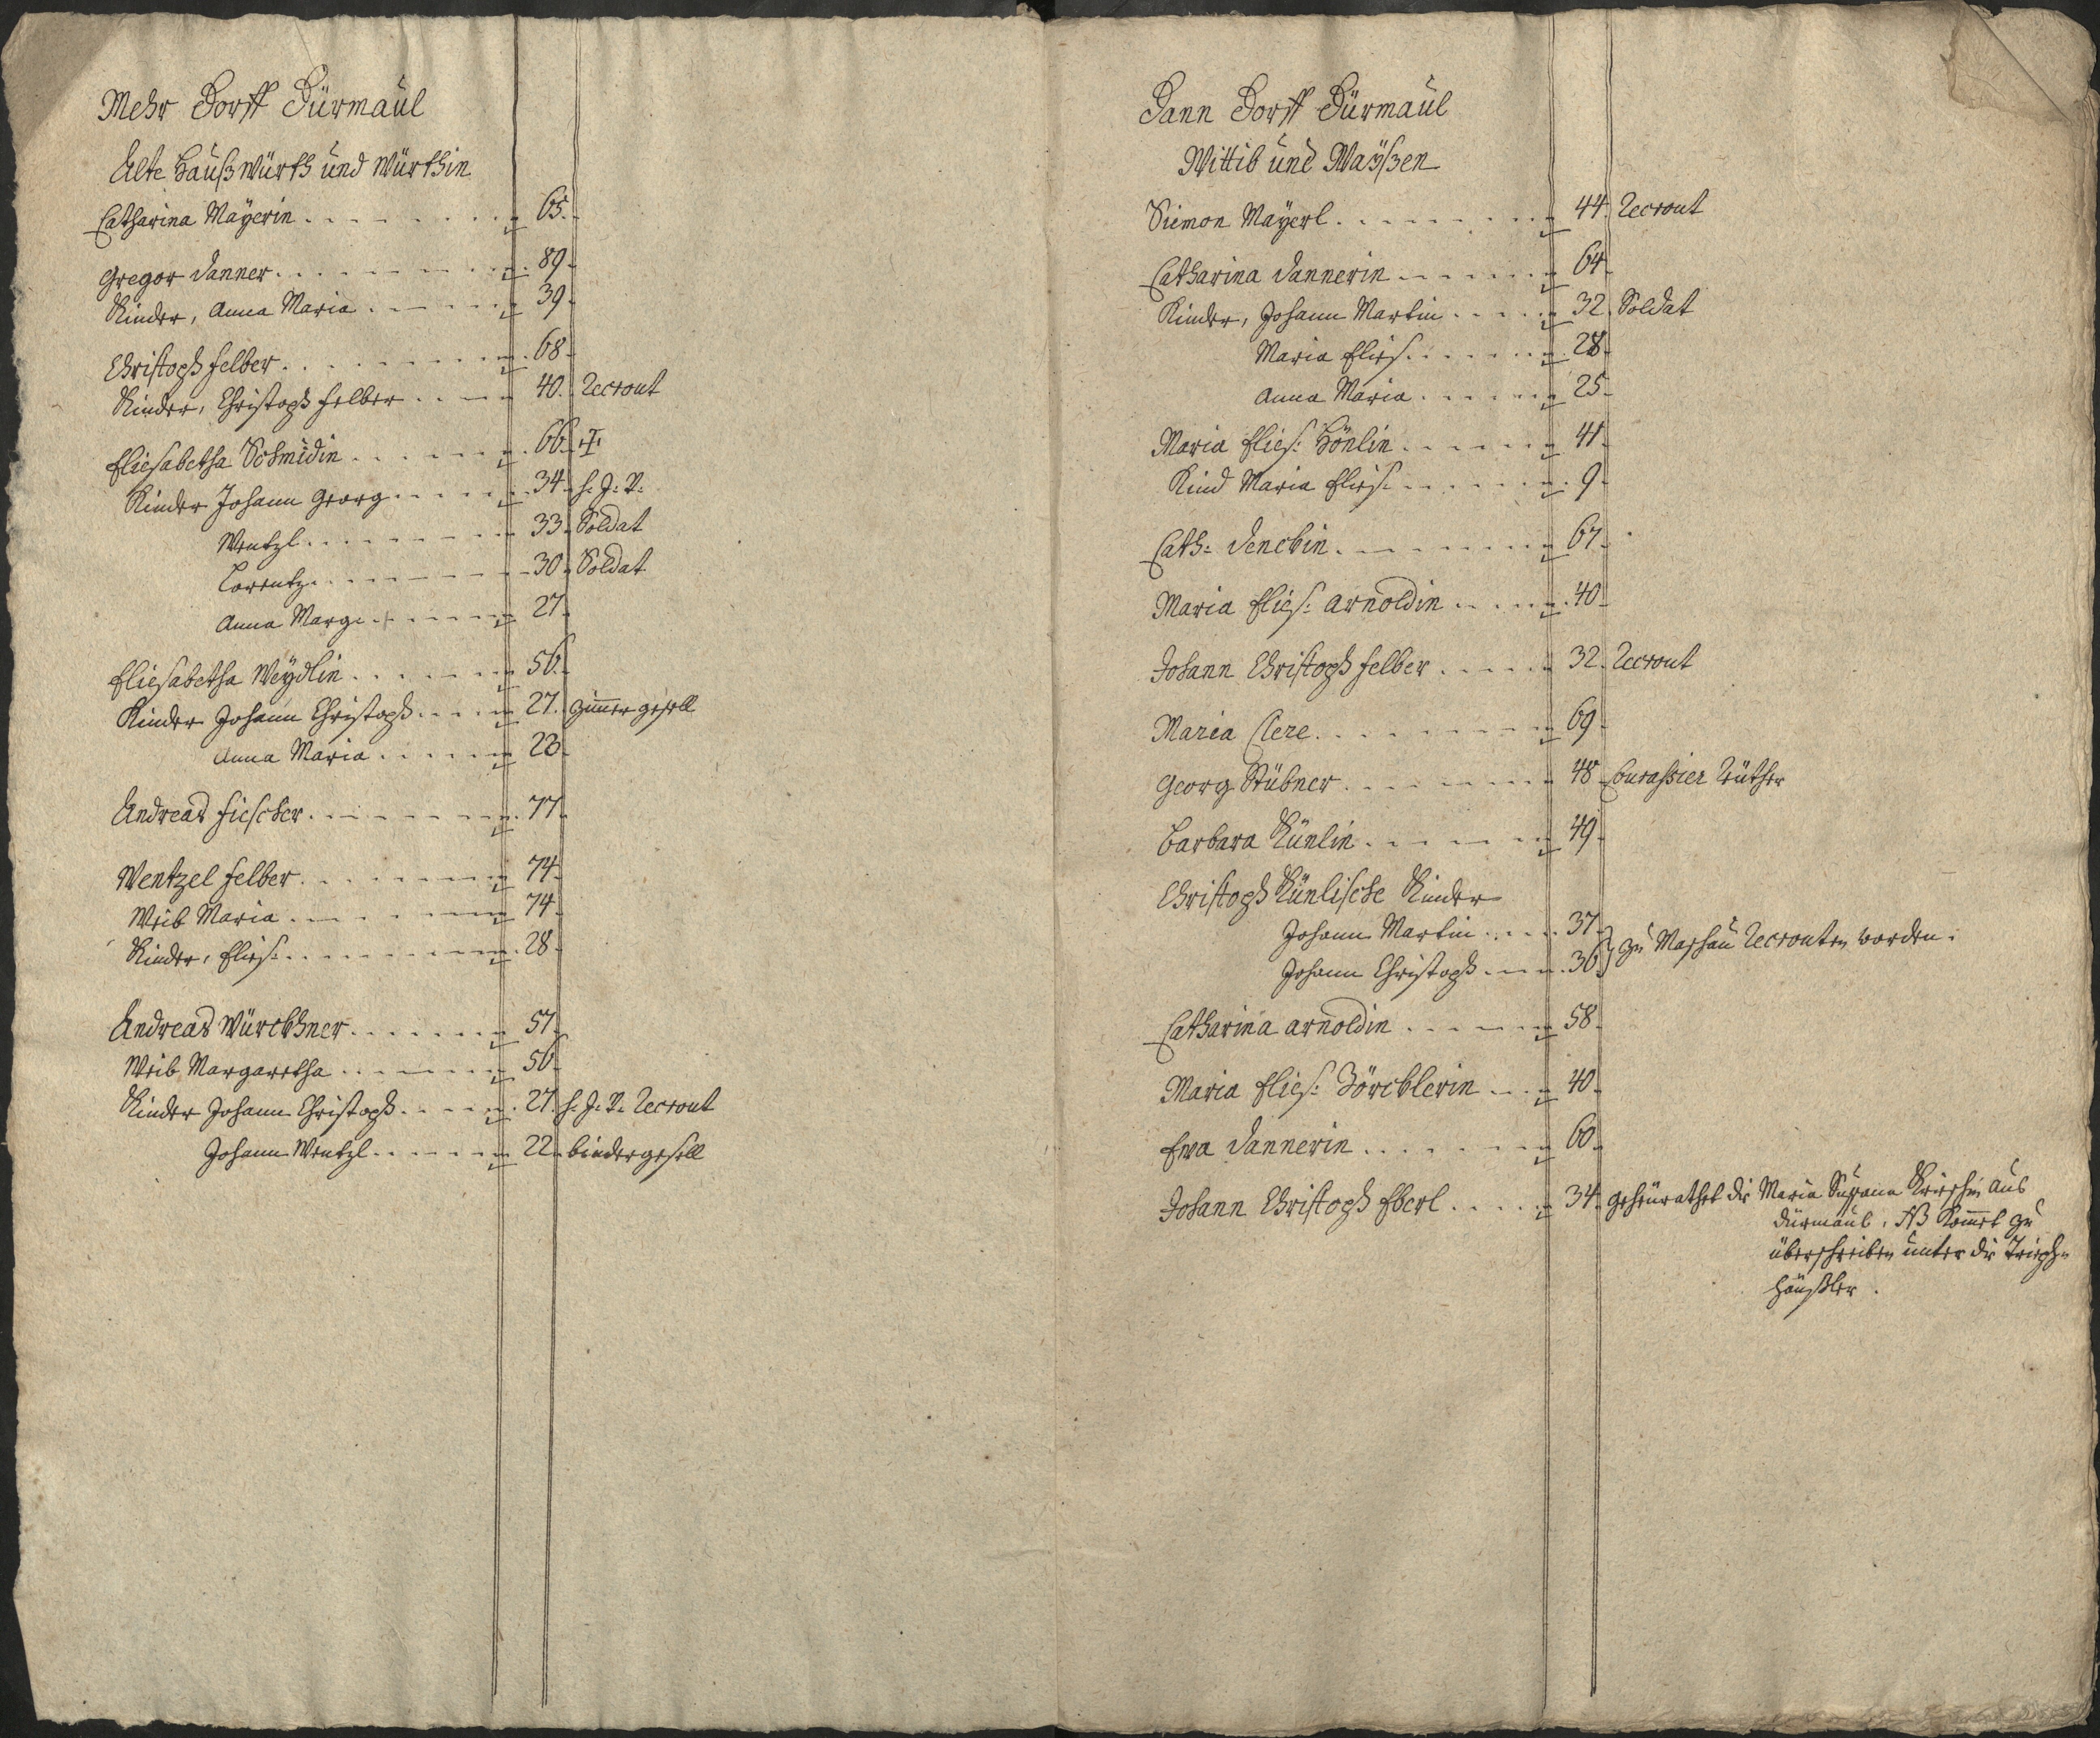 Mehr Dorff Dürmaul
Alte Haußwürth und Würthin
Catharina Mayerin 65.
Gregor Danner 89
Kinder, Anna Maria 39
Christoph Felber 68
Kinder, Christoph Felber 40. Recrout
Eliesabetha Schmidin 66 †
Kinder Johann Georg 34 h. J. V.
Wentzl 33 Soldat
Lorentz 30 Soldat
Anna Marg. 27
Eliesabetha Weydlin 56
Kinder Johann Christoph 27. Zimmer gesell
Anna Maria 23
Andreas Fiescher 77
Wentzel Felber 74
Weib Maria 74
Kinder, Elies. 28
Andreas Würckhner 57
Weib Margaretha 56
Kinder Johann Christoph 27. h. J. V. Recrout
Johann Wentzl 22 bindergesell
Dann Dorff Dürmaul
Wittib und Waÿßen
Siemon Mayerl 44. Recrout
Catharina Dannerin 64
Kinder, Johann Martin 32. Soldat
Maria Elies. 28
Anna Maria 25
Maria Elies: Hönlin 41
Kind Maria Elies. 9
Cath: 67
Maria Elies: Arnoldin 40
Johann Christoph Felber 32. Recrout
Maria Clere 69
Georg Stübner 48 Curassier Reüther
Barbara Künlin 49
Christoph Künlische Kinder
Johann Martin 37
Johann Christoph 36 } zu Maschau Recrouten worden.
Catharina Arnoldin 58
Maria Elies: Zörcklerin 40
Eva Dannerin 60
Johann Christoph Eberl 34. geheürathet die Maria Susana aus
Dürmaul, NB komet zu
überschreiben unter die
Häußler.